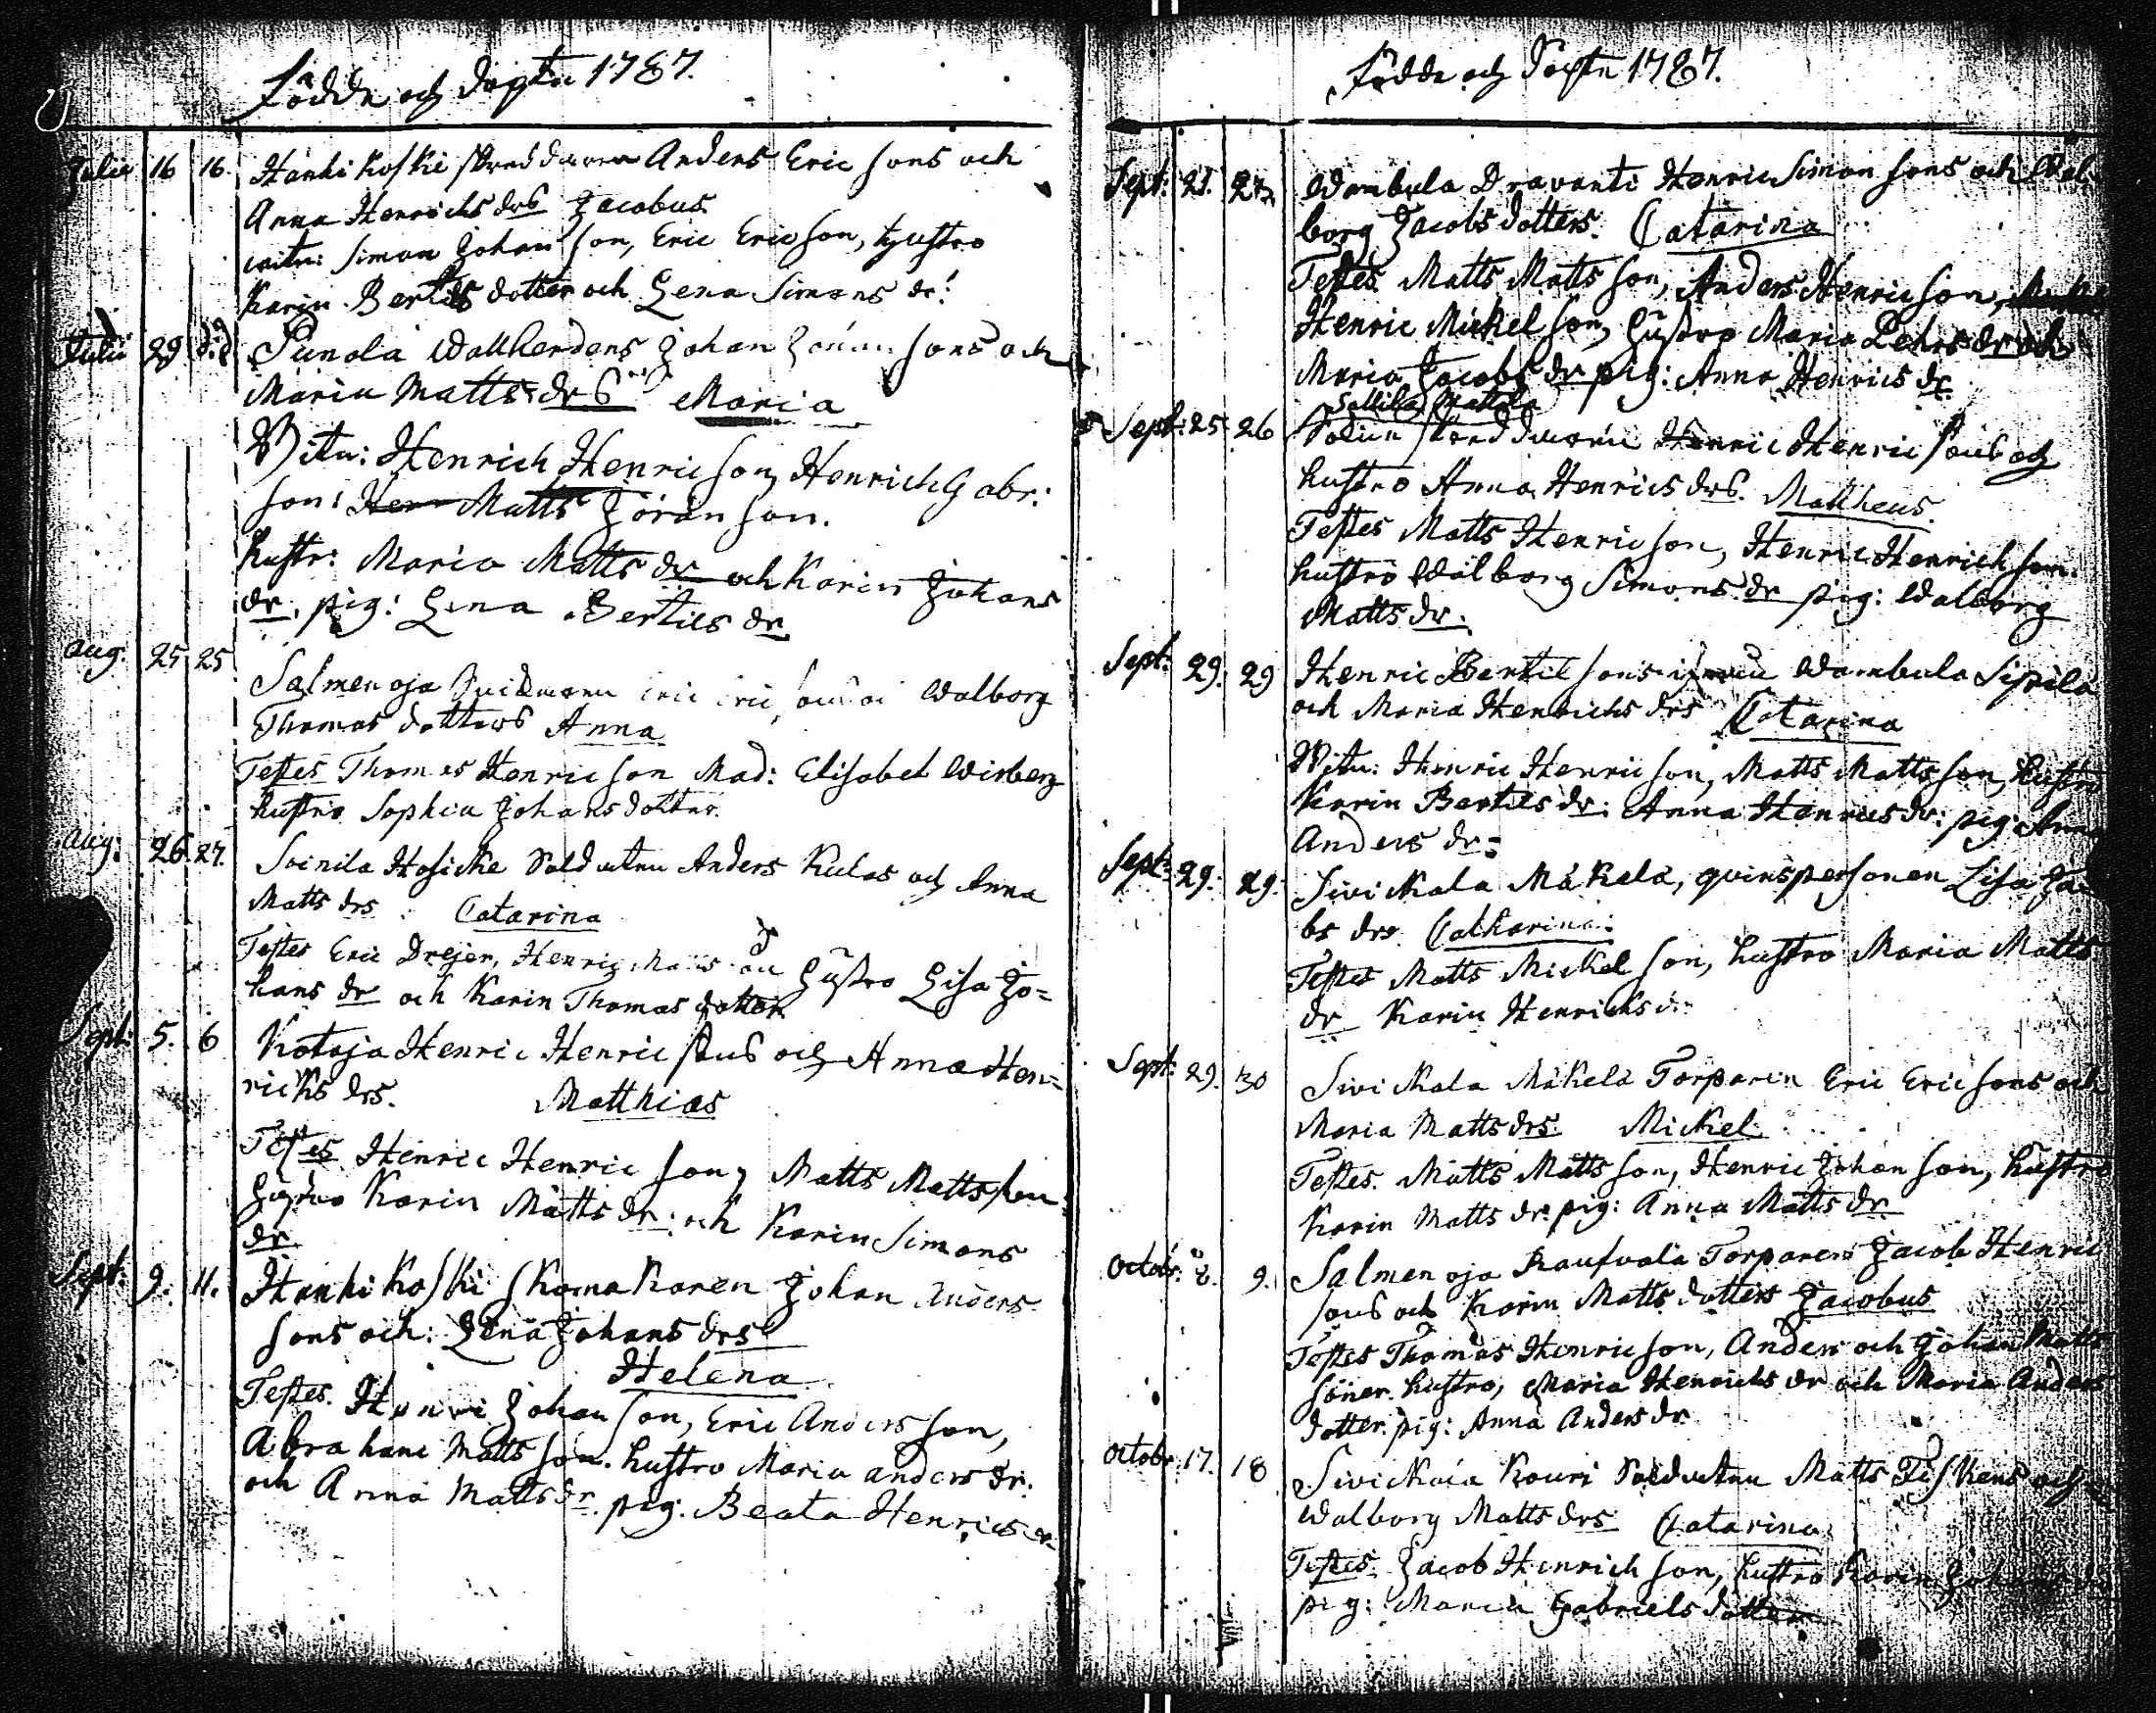 Födde och Döpte 1787.
Julii 16 16. Hanki koski Anders Eric sons och
Anna Henrichs drs Jacobus
witn: Simon Johan son, Eric Ericson, hustro
Karin Bertils dotter och Lena Simons dr:
Julii 29 Punola Wallherdens Johan sons och
Maria Matts drs Maria
Witn: Henrich Henric son, Henrich Gabr:
son: Matts Jöran son.
hustr: Maria Matts dr och Karin Johans
dr, pig: Lena Bertils dr
Aug. 25 25 Salmenoja Walborg
Thomas dotters Anna
Testes Thomas Henric son Mad: Elisabet Wirberg
hustro Sophia Johans dotter.
Aug: 26. 27. Soinila Hosicke Soldaten Anders Kulas och Anna
Matts drs Catarina
Testes Eric Drejer, Henric hustro Lisa Jo=
hans dr och Karin Thomas dotter
Sept: 5. 6 Kotoja Henric Henric sons och Anna Hen=
richs drs. Matthias
Testes Henric Henric son, Matts Matts son
hustro Karin Matts dr: och Karin Simons
dr.
Sept: 9. 11. Hanki koski skomakaren Johan Anders
sons och: Lena Johans drs
Helena
Testes. Henric Johan son, Eric Anders son,
Abraham Matts son. hustro Maria anders dr:
och Anna Matts dr. pig: Beata Henrics dr
Födde och Döpte 1787.
Sept: 21. 23 Wambula Dravanti Henric Simon sons och Wal
borg Jacobs dotters. Catarina
Testes Matts Matts son, Anders Henric son,
Henric Mickel son, hustro Maria dr och
Maria Jacobs dr pig: Anna Henrics dr
Sallila Mattila
Sept: 25 26 Henric Henric sons och
hustro Anna Henrics drs. Mattheus.
Testes Matts Henric son, Henric Henrich son.
hustro Walborg Simons dr pig: Walborg
Matts dr.
Sept: 29. 29 Henric Bertil sons Wambula Sipila
och Maria Henrichs drs Catarina
Witn: Henric Henric son, Matts Matts son, hustro
Karin Bertils dr: Anna Henrics dr: pig Anna
Anders dr:
Sept: 29. 29. Siwickala Mäkelä, qvinspersonen Lisa Ja
bs drs Catharina:
Testes Matts Mickel son, hustro Maria Matts
dr Karin Henrichs dr
Sept: 29. 30 Siwickala Mäkelä Torparen Eric Eric sons och
Maria Matts drs: Mickel
Testes. Matts Matts son, Henric Johan son, hustro
Karin Matts dr: pig: Anna Matts dr
Octobr: 8. 9. Salmenoja Torparen Jacob Henric
sons och Karin Matts dotters Jacobus
Testes Thomas Henric son, Anders och Johan Matts
söner. hustro, Maria Henrichs dr och Maria Anders
dotter. pig: Anna Anders dr
Octobr 17. 18 Kouri Soldaten Matts Fiskens och
Walborg Matts drs Catarina
Testes. Jacob Henrich son, hustro Karin
pig: Maria Gabriels dotter